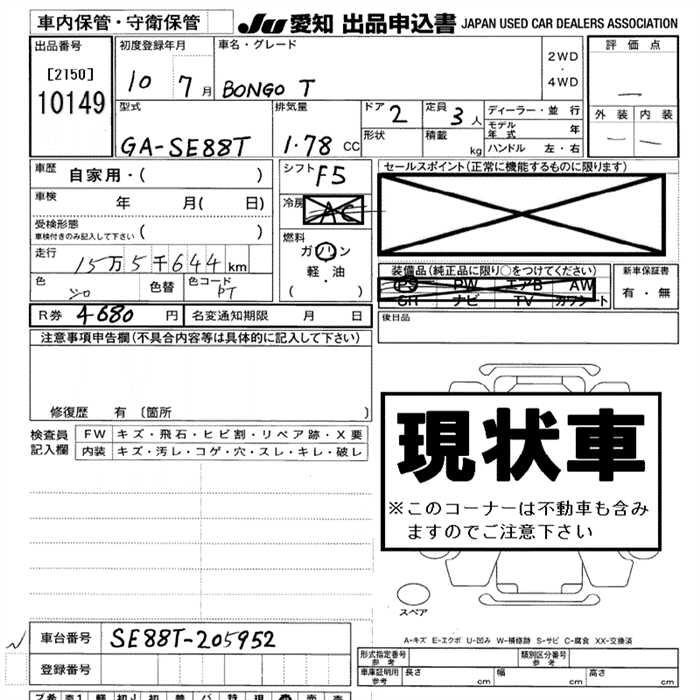 車内保管・守衛保管 JU 愛知 出品申込書 JAPAN USED CAR DEALERS ASSOCIATION
出品番号 初度登録年月 車名・グレード 評価点
[2150] 2WD・4WD
10149 10 7月 BONGO T —
型式 排気量 ドア 2 定員 3人 ディーラー・並行 外装 内装
モデル年式 年
GA-SE88T 1.78 CC 形状 積載 kg ハンドル 左・右 — —
車歴 自家用・( ) シフト F5 セールスポイント(正常に機能するものに限ります)
車検 年 月( 日) 冷房 AC
受検形態
車検付きのみ記入して下さい ( ) 燃料
ガソリン
走行 15万5千644km 軽・油
・
( ) 装備品(純正品に限り○をつけてください) 新車保証書
PS PW エアB AW 有・無
SH ナビ TV カワシート
色 シロ 色替 色コード PT
R券 4-680 円 名変通知期限 月 日 後日品
注意事項申告欄(不具合内容等は具体的に記入して下さい)
修復歴 有 [箇所 ]
検査員 FW キズ・飛石・ヒビ割・リペア跡・X要
記入欄 内装 キズ・汚レ・コゲ・穴・スレ・キレ・破レ
現状車
※このコーナーは不動車も含み
ますのでご注意下さい
スペア
A-キズ E-エクボ U-凹み W-補修跡 S-サビ C-腐食 XX-交換済
車台番号 SE88T-205952
登録番号
形式指定番号 参考 類別区分番号 参考
車庫証明用 参考 長さ cm 幅 cm 高さ cm